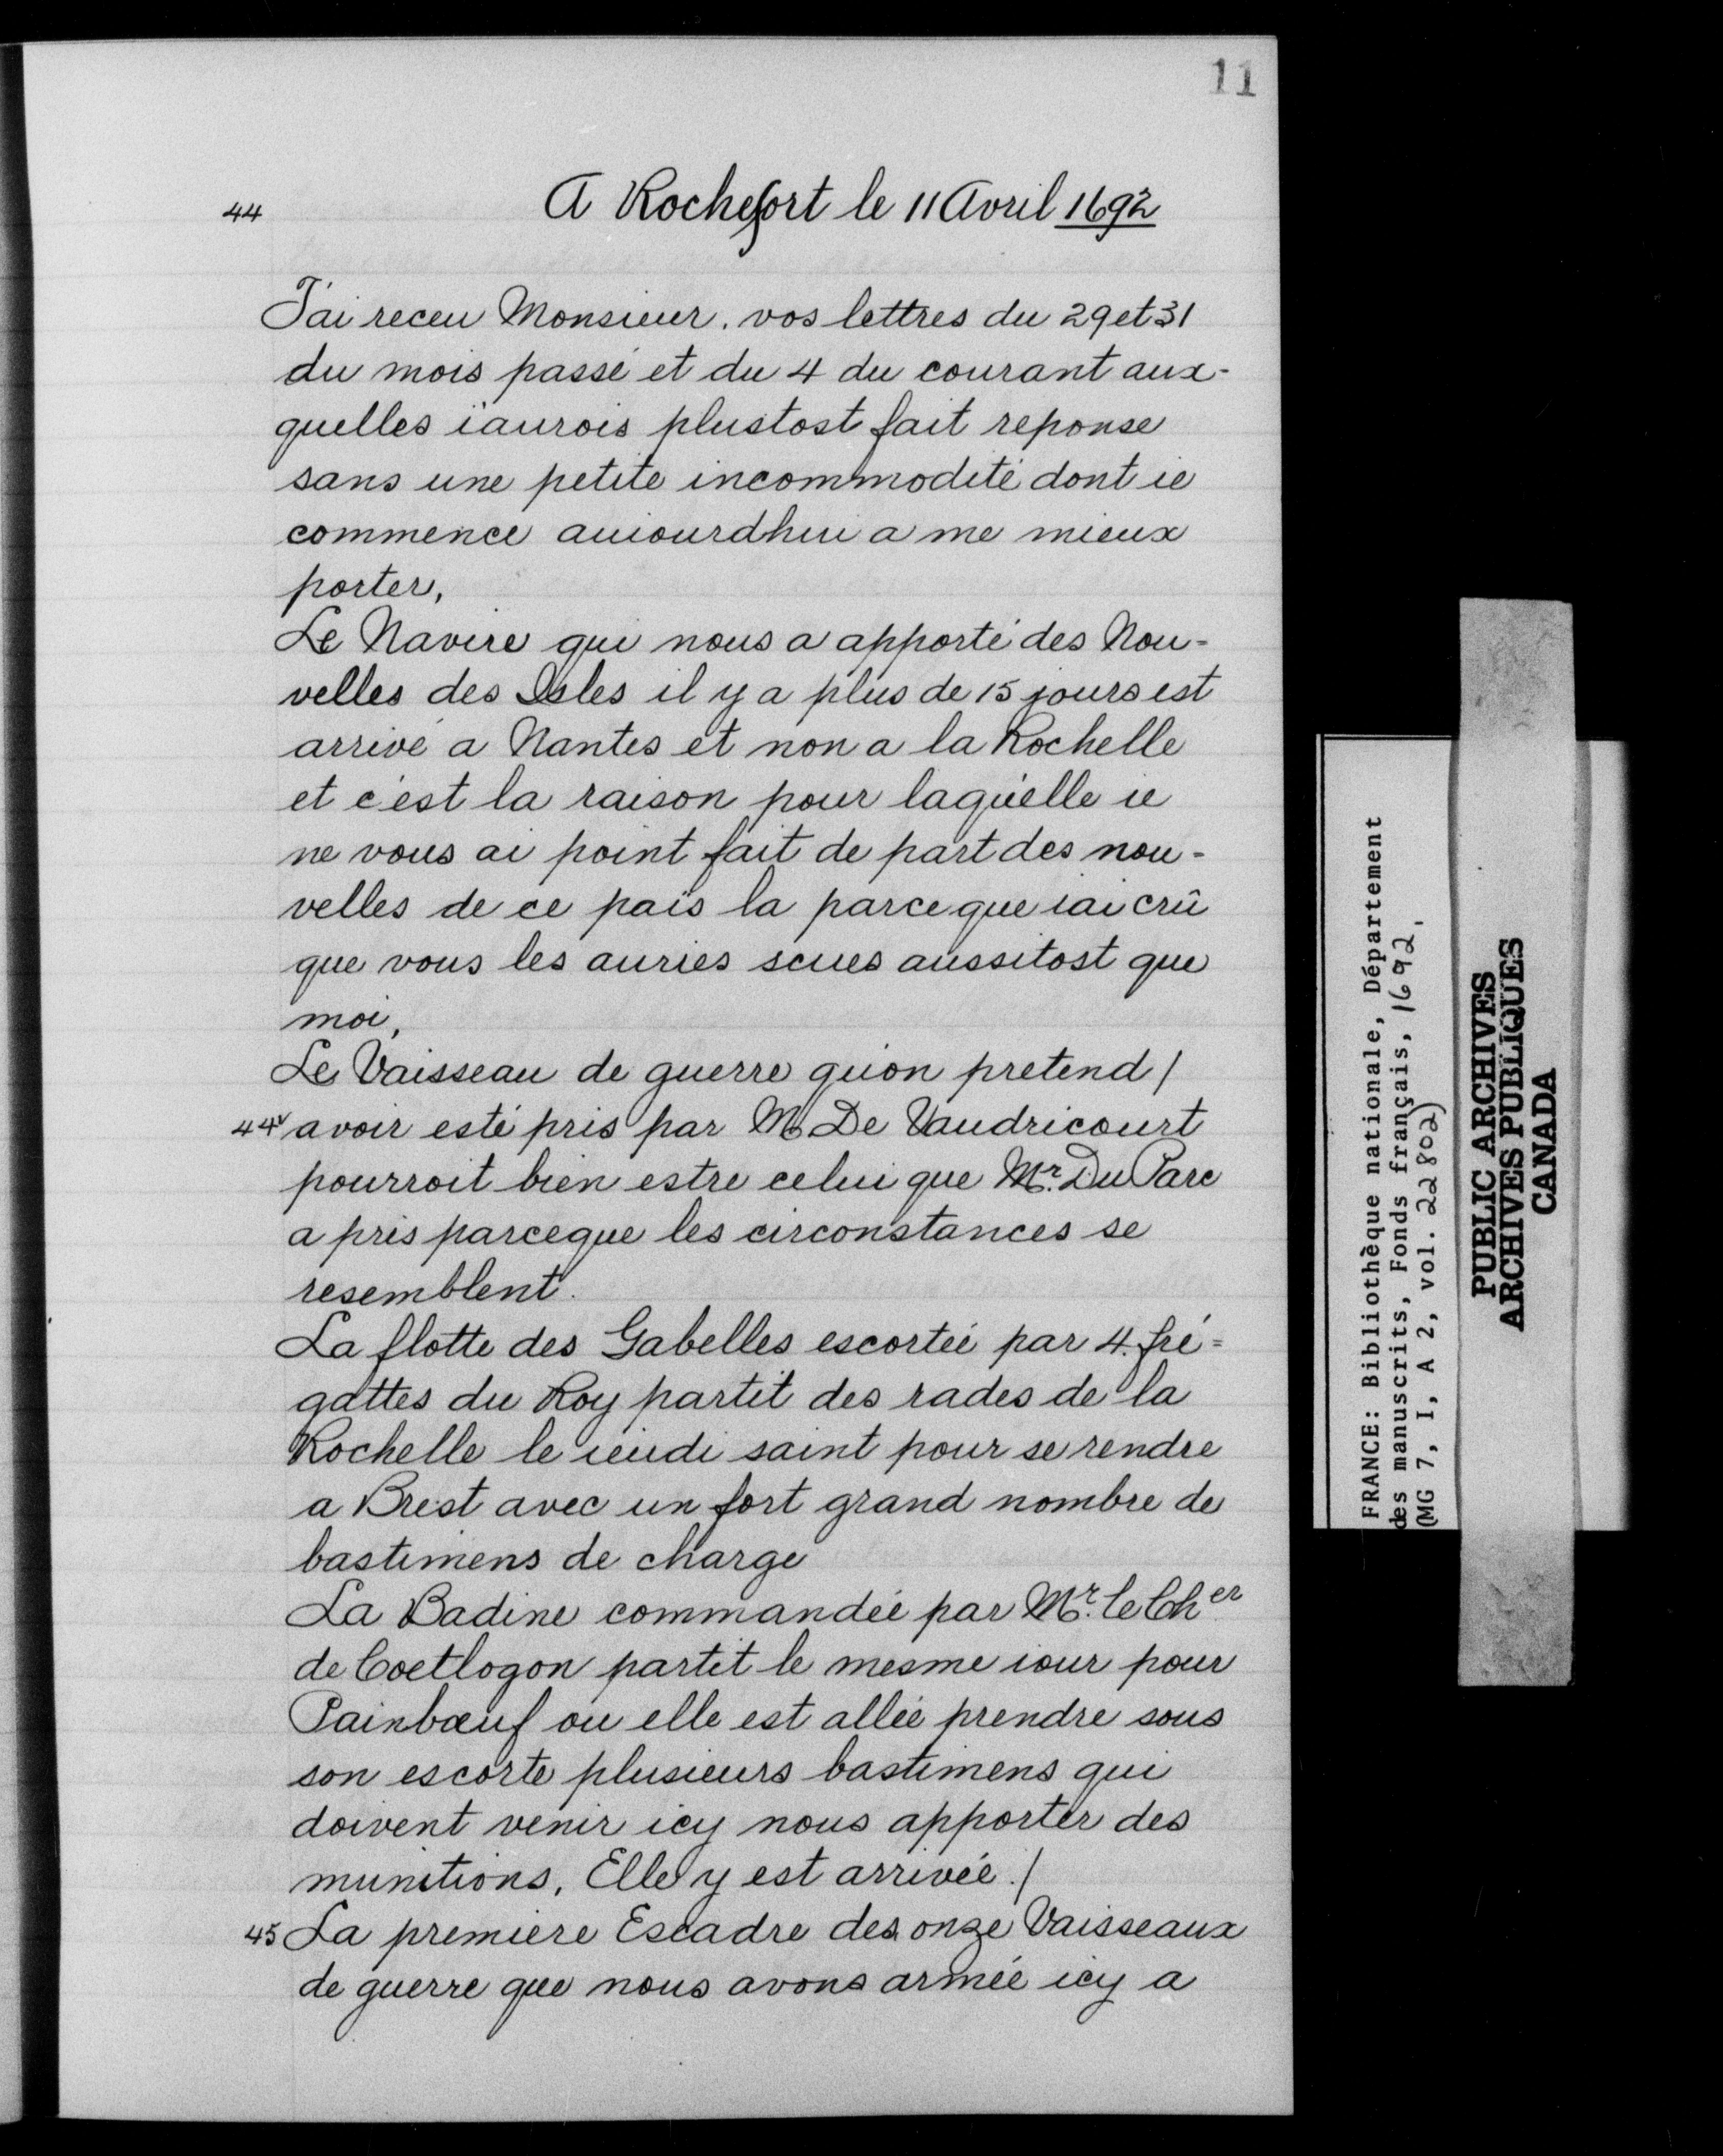 11
44 A Rochefort le 11 Avril 1692
J'ai receu Monsieur. vos lettres du 29 et 31
du mois passé et du 4 du courant aux-
quelles i'aurois plustost fait reponse
sans une petite incommodité dont ie
commence auiourdhui a me mieux
porter,
Le Navire qui nous a apporté des Nou-
velles des Isles il y a plus de 15 jours est
arrivé a Nantes et non a la Rochelle
et c'est la raison pour laquelle ie
ne vous ai point fait de part des nou-
velles de ce païs la parceque iai crû
que vous les auries sçues aussitost que
moi,
Le Vaisseau de guerre qu'on pretend /
44v avoir esté pris par M. De Vaudricourt
pourroit bien estre celui que Mr. Du Parc
a pris parceque les circonstances se
resemblent.
La flotte des Gabelles escortée par 4. fré=
gattes du Roy partit des rades de la
Rochelle le ieudi saint pour se rendre
a Brest avec un fort grand nombre de
bastimens de charge
La Badine commandée par Mr. le Cher
de Coetlogon partit le mesme iour pour
Painbœuf ou elle est allée prendre sous
son escorte plusieurs bastimens qui
doivent venir icy nous apporter des
munitions, Elle y est arrivée. /
45 La premiere Escadre des onze Vaisseaux
de guerre que nous avons armée icy a
FRANCE: Bibliothèque nationale, Département
des manuscrits, Fonds français, 1692,
(MG 7, I, A 2, vol. 22802)
PUBLIC ARCHIVES
ARCHIVES PUBLIQUES
CANADA